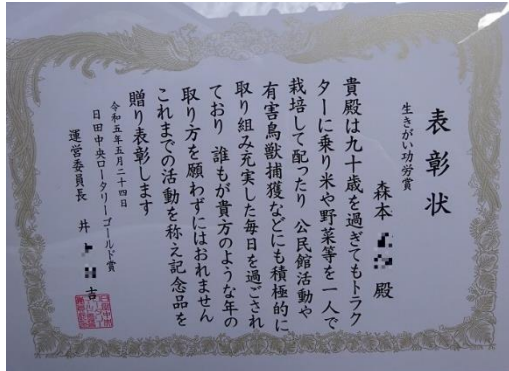 表彰状
生きがい功労賞
森本 殿
貴殿は九十歳を過ぎてもトラク
ターに乗り米や野菜等を一人で
栽培して配ったり 公民館活動や
有害鳥獣捕獲などにも積極的に
取り組み充実した毎日を過ごされ
ており 誰もが貴方のような年の
取り方を願わずにはおれません
これまでの活動を称え記念品を
贈り表彰します
令和五年五月二十四日
日田中央ロータリーゴールド賞
運営委員長 井 吉